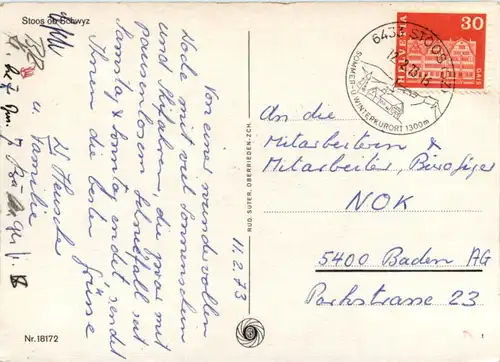 Stoos ob Schwyz
Von einer wundervollen
Woche mit viel Sonnenschein
und Skifahren, die zwar mit
pausenlosem Schneefall seit
Samstag & Sonntag endet sendet
Ihnen die besten Grüsse
u. Familie
11.2.73
RÜD. SUTER, OBERRIEDEN-ZCH.
Nr. 18172
6433 STOOS
SOMMER-U. WINTERKURORT 1300m
HELVETIA
30
GAIS
An die
Mitarbeitern &
Mitarbeiter, Büro
NOK
5400 Baden AG
Parkstrasse 23
1